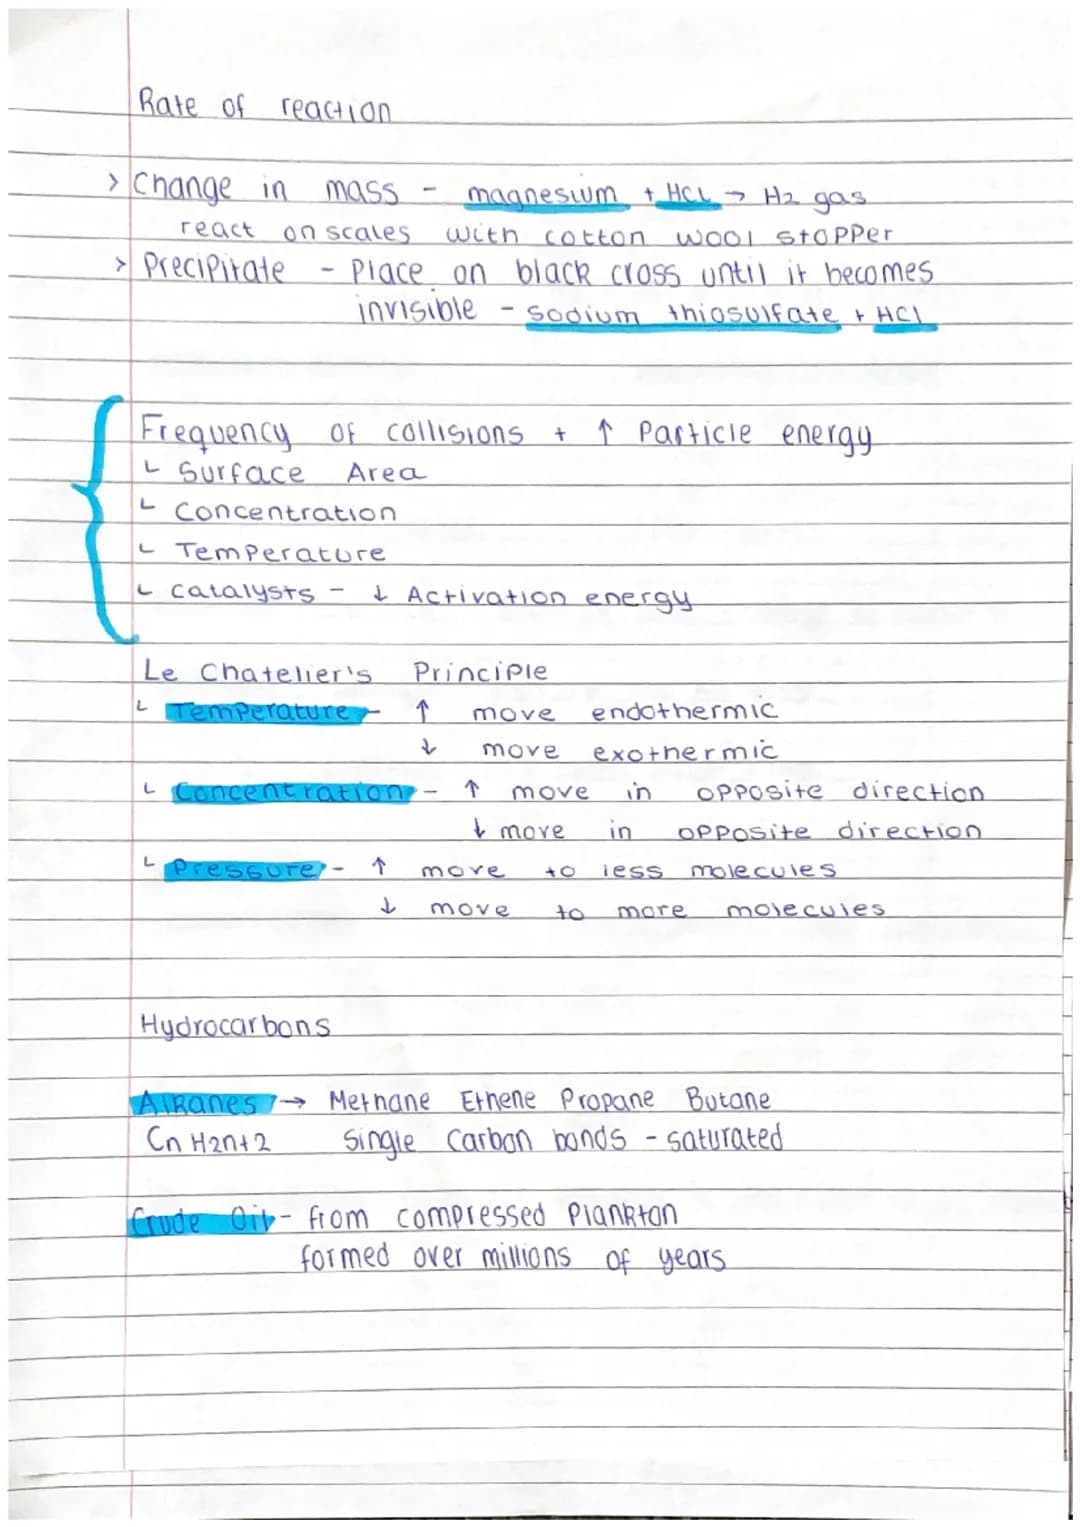 Rate of reaction
> Change in mass - magnesium + HCL → H2 gas
react on scales with cotton wool stopper
> Precipitate - Place on black cross until it becomes
invisible - sodium thiosulfate + HCl
Frequency of collisions + ↑ Particle energy
└ Surface Area
└ Concentration
└ Temperature
└ Catalysts - ↓ Activation energy
Le Chatelier's Principle
└ Temperature - ↑ move endothermic
↓ move exothermic
└ Concentration - ↑ move in opposite direction
↓ move in opposite direction
└ Pressure - ↑ move to less molecules
↓ move to more molecules
Hydrocarbons
Alkanes → Methane Ethene Propane Butane
Cn H2n+2 single carbon bonds - saturated
Crude Oil - from compressed Plankton
formed over millions of years